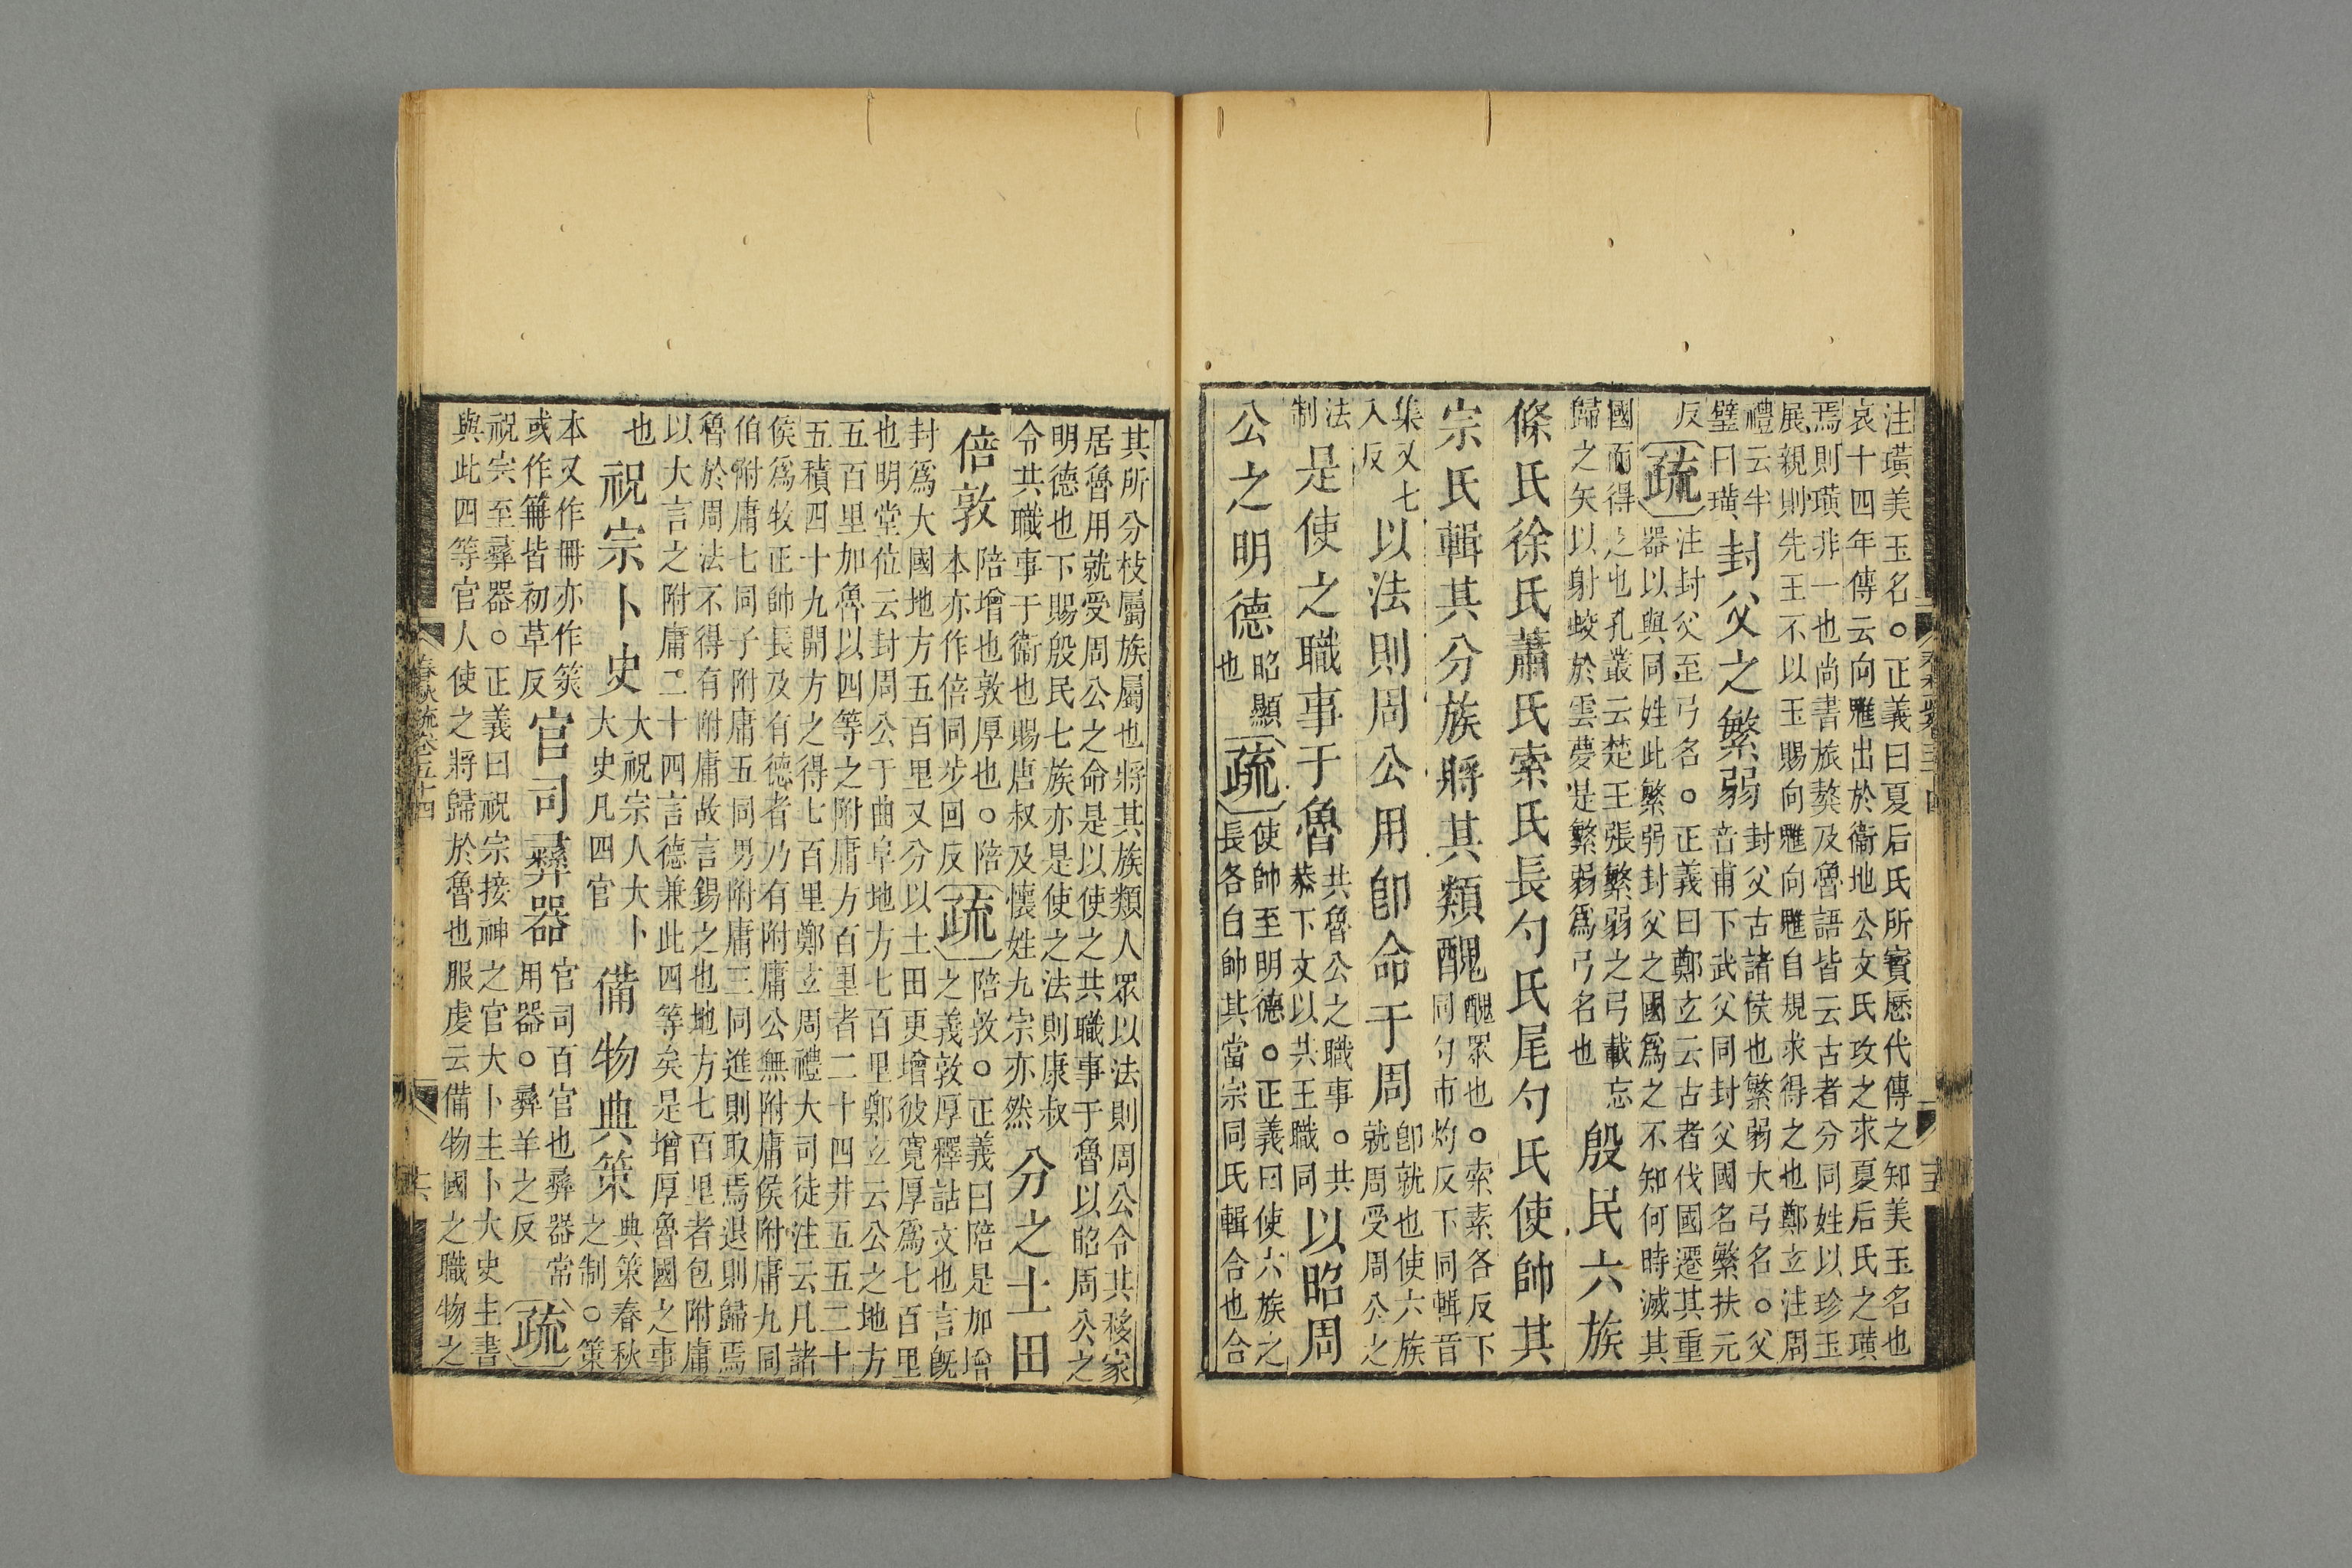 注璜美玉名○正義曰夏后氏所寳歷代傳之知美玉名也
哀十四年傳云向魋出於衞地公文氏攻之求夏后氏之璜
焉則璜非一也尚書旅獒及魯語皆云古者分同姓以珍玉
展親則先王不以玉賜向魋向魋自規求得之也鄭玄注周
禮云半
璧曰璜
封父之繁弱
封父古諸侯也繁弱大弓名○父
音甫下武父同封父國名繁扶元
反
疏
注封父至弓名○正義曰鄭玄云古者伐國遷其重
器以與同姓此繁弱封父之國爲之不知何時滅其
國而得之也孔叢云楚王張繁弱之弓載忘
歸之矢以射蛟於雲夢是繁弱爲弓名也
殷民六族
條氏徐氏蕭氏索氏長勺氏尾勺氏使帥其
宗氏輯其分族將其類醜
醜眾也○索素各反下
同勺市灼反下同輯音
集又七
入反
以法則周公用卽命于周
卽就也使六族
就周受周公之
法
制
是使之職事于魯
共魯公之職事○共
恭下文以共王職同
以昭周
公之明德
昭顯
也
疏
使帥至明德○正義曰使六族之
長各自帥其當宗同氏輯合也合
其所分枝屬族屬也將其族類人眾以法則周公令共移家
居魯用就受周公之命是以使之共職事于魯以昭周公之
明德也下賜殷民七族亦是使之法則康叔
令共職事于衞也賜唐叔及懷姓九宗亦然
分之土田
倍敦
陪增也敦厚也○陪
本亦作倍同步回反
疏
陪敦○正義曰陪是加增
之義敦厚釋詁文也言旣
封爲大國地方五百里又分以土田更增彼寬厚爲七百里
也明堂位云封周公于曲阜地方七百里鄭玄云公之地方
五百里加魯以四等之附庸方百里者二十四井五五二十
五積四十九開方之得七百里鄭玄周禮大司徒注云凡諸
侯爲牧正帥長及有德者乃有附庸公無附庸侯附庸九同
伯附庸七同子附庸五同男附庸三同進則取焉退則歸焉
魯於周法不得有附庸故言錫之也地方七百里者包附庸
以大言之附庸二十四言德兼此四等矣是增厚魯國之事
也
祝宗卜史
大祝宗人大卜
大史凡四官
備物典策
典策春秋
之制○策
本又作冊亦作筴
或作籍皆初革反
官司彝器
官司百官也彝器常
用器○彝羊之反
疏
祝宗至彝器○正義曰祝宗接神之官大卜主卜大史主書
與此四等官人使之將歸於魯也服虔云備物國之職物之
春秋疏卷五十四